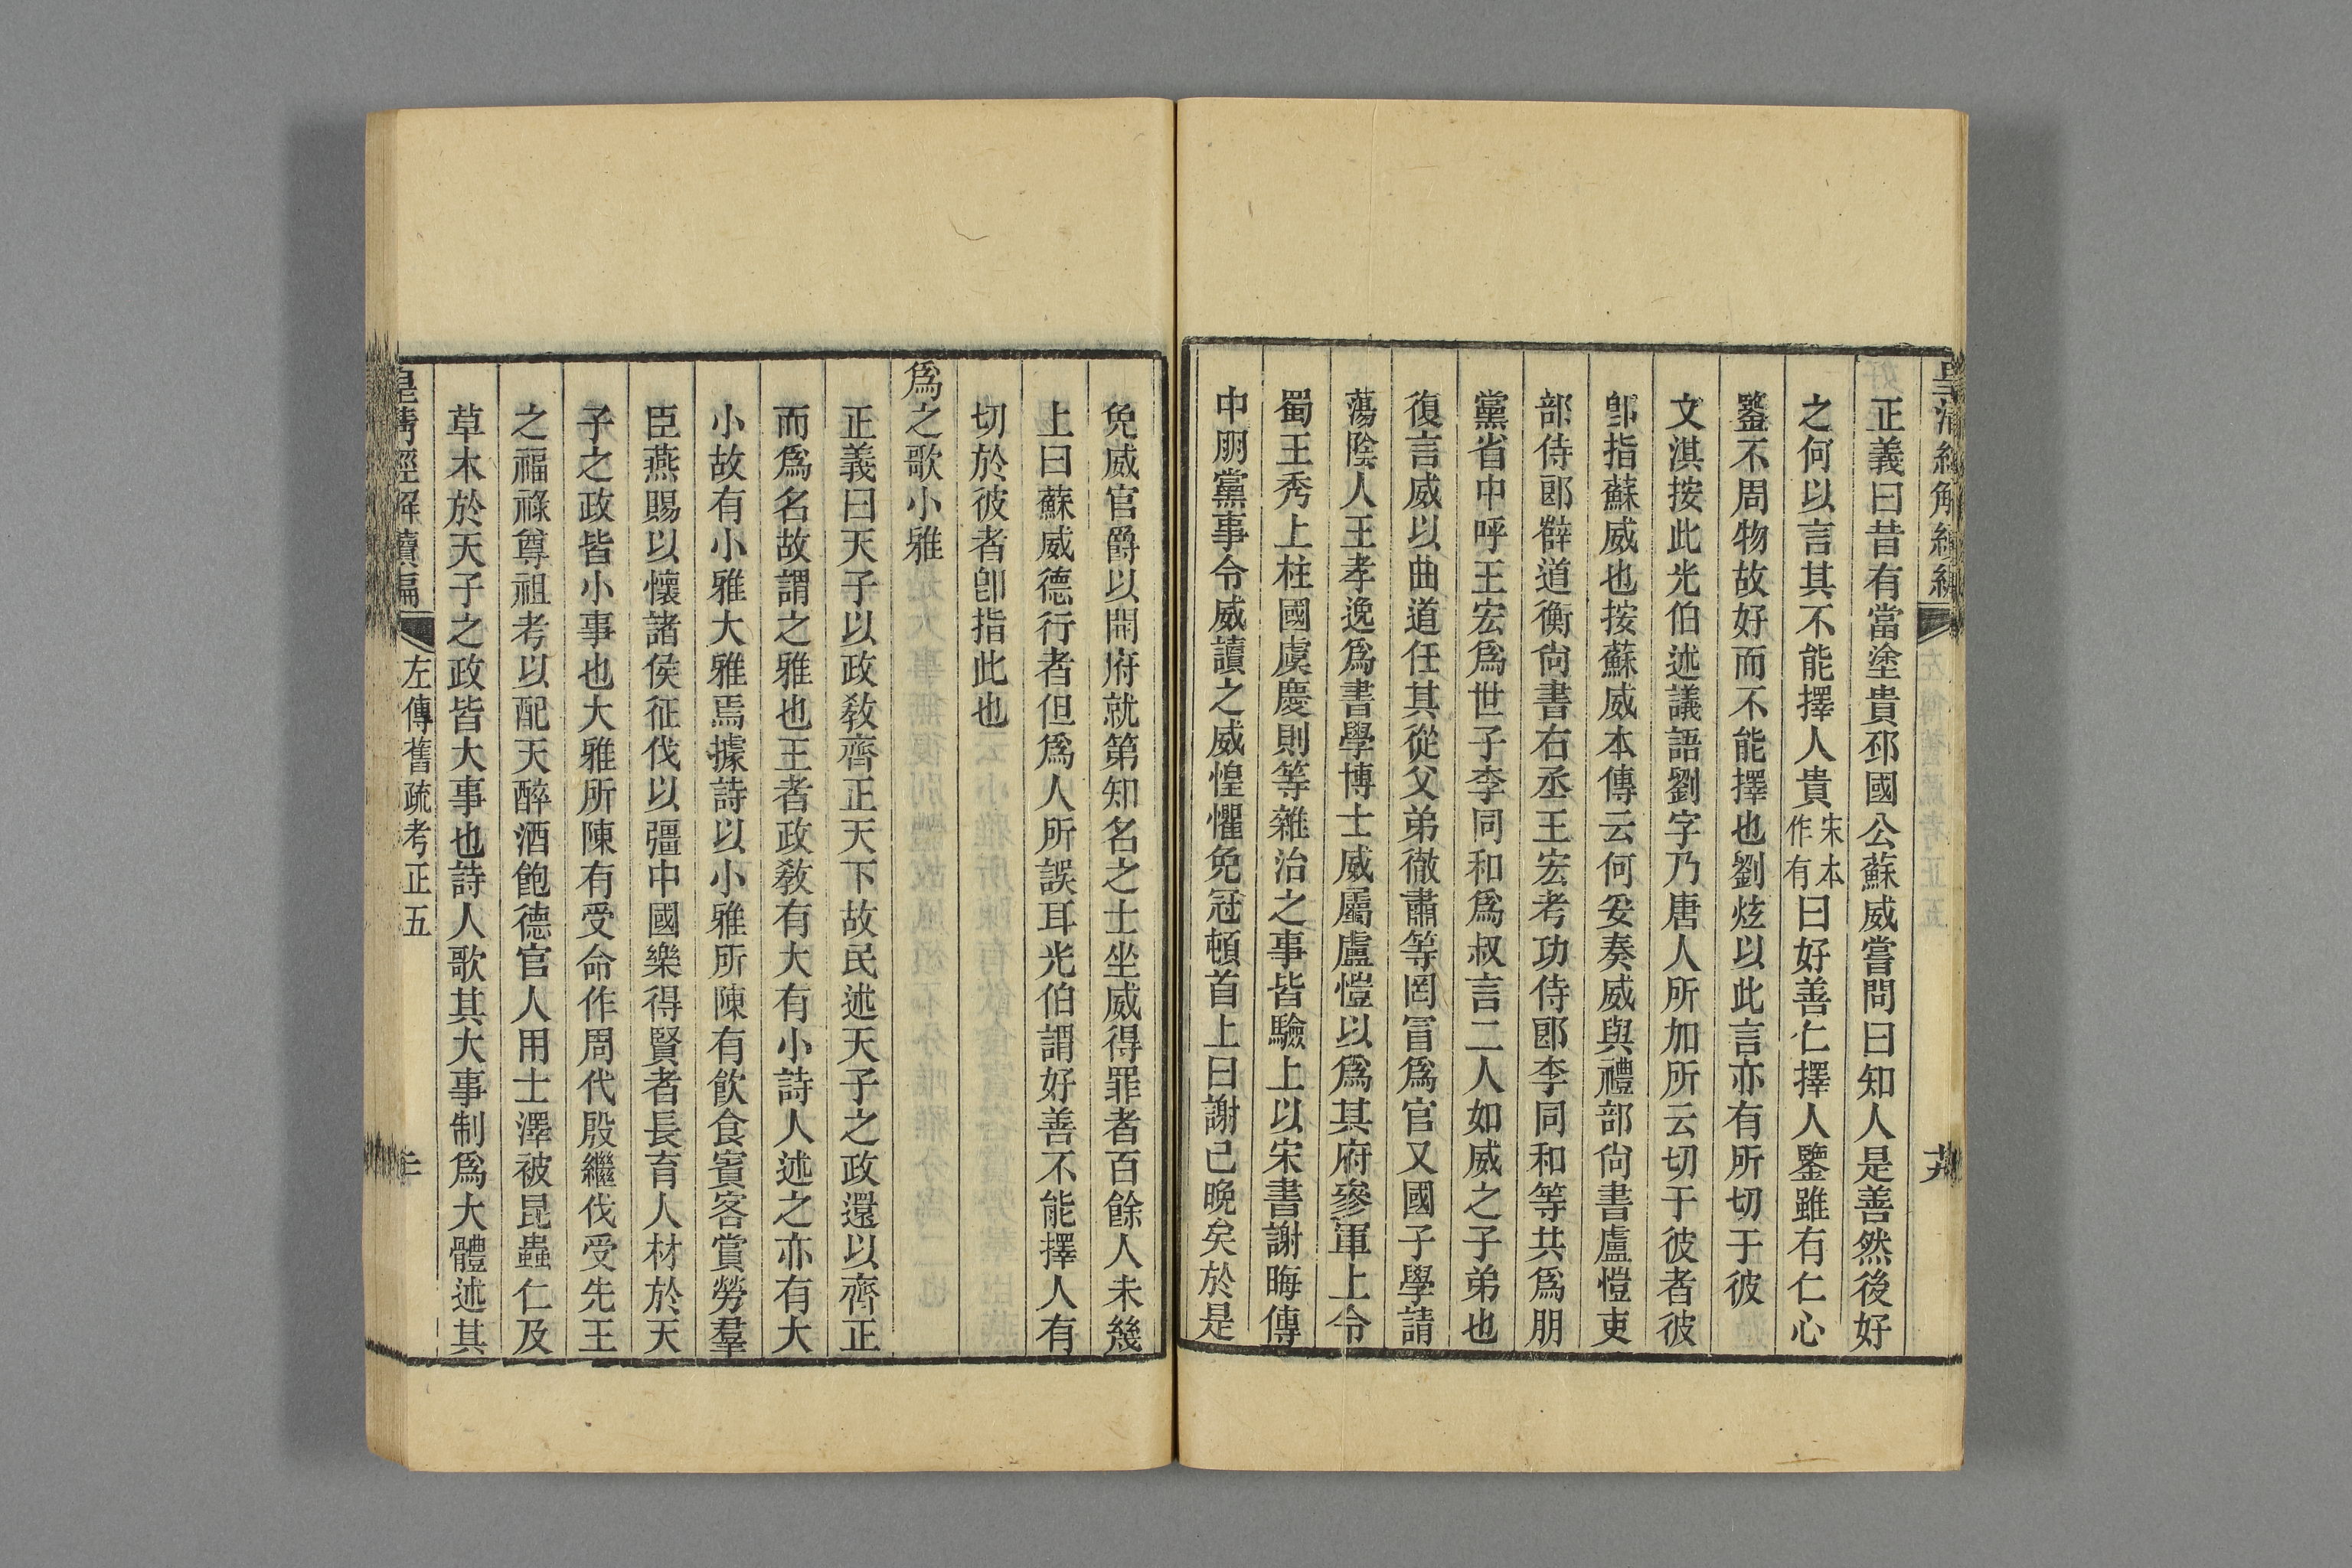 正義曰昔有當塗貴邳國公蘇威嘗問曰知人是善然後好
之何以言其不能擇人貴宋本作有曰好善仁擇人鑒雖有仁心
鑒不周物故好而不能擇也劉炫以此言亦有所切于彼
文淇按此光伯述議語劉字乃唐人所加所云切于彼者彼
卽指蘇威也按蘇威本傳云何妥奏威與禮部尙書盧愷吏
部侍郎薛道衡尙書右丞王宏考功侍郎李同和等共爲朋
黨省中呼王宏爲世子李同和爲叔言二人如威之子弟也
復言威以曲道任其從父弟徹肅等罔冒爲官又國子學請
蕩陰人王孝逸爲書學博士威屬盧愷以爲其府參軍上令
蜀王秀上柱國虞慶則等雜治之事皆驗上以宋書謝晦傳
中朋黨事令威讀之威惶懼免冠頓首上曰謝已晚矣於是
免威官爵以開府就第知名之士坐威得罪者百餘人未幾
上曰蘇威德行者但爲人所誤耳光伯謂好善不能擇人有
切於彼者卽指此也
爲之歌小雅
正義曰天子以政敎齊正天下故民述天子之政還以齊正
而爲名故謂之雅也王者政敎有大有小詩人述之亦有大
小故有小雅大雅焉據詩以小雅所陳有飮食賓客賞勞羣
臣燕賜以懷諸侯征伐以彊中國樂得賢者長育人材於天
子之政皆小事也大雅所陳有受命作周代殷繼伐受先王
之福祿尊祖考以配天醉酒飽德官人用士澤被昆蟲仁及
草木於天子之政皆大事也詩人歌其大事制爲大體述其
皇淸經解續編
左傳舊疏考正五